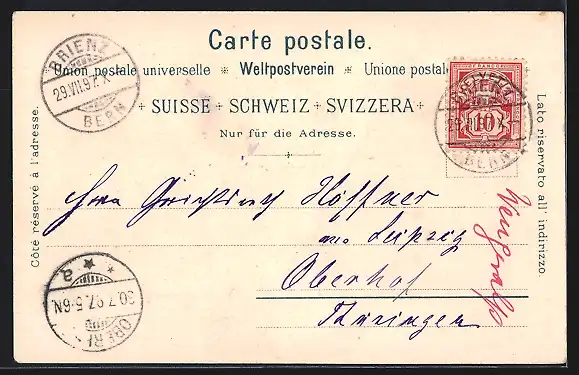 Carte postale.
Union postale universelle ✻ Weltpostverein ✻ Unione postale
+ SUISSE + SCHWEIZ + SVIZZERA +
Nur für die Adresse.
Côté réservé à l'adresse.
Lato riservato all' indirizzo.
BRIENZ
29.VII.97.X
BERN
10
BRIENZ
BERN
Herrn Gerichtsrath Höffner
aus Leipzig
Oberhof
Thüringen
30.7.97.5-6N.